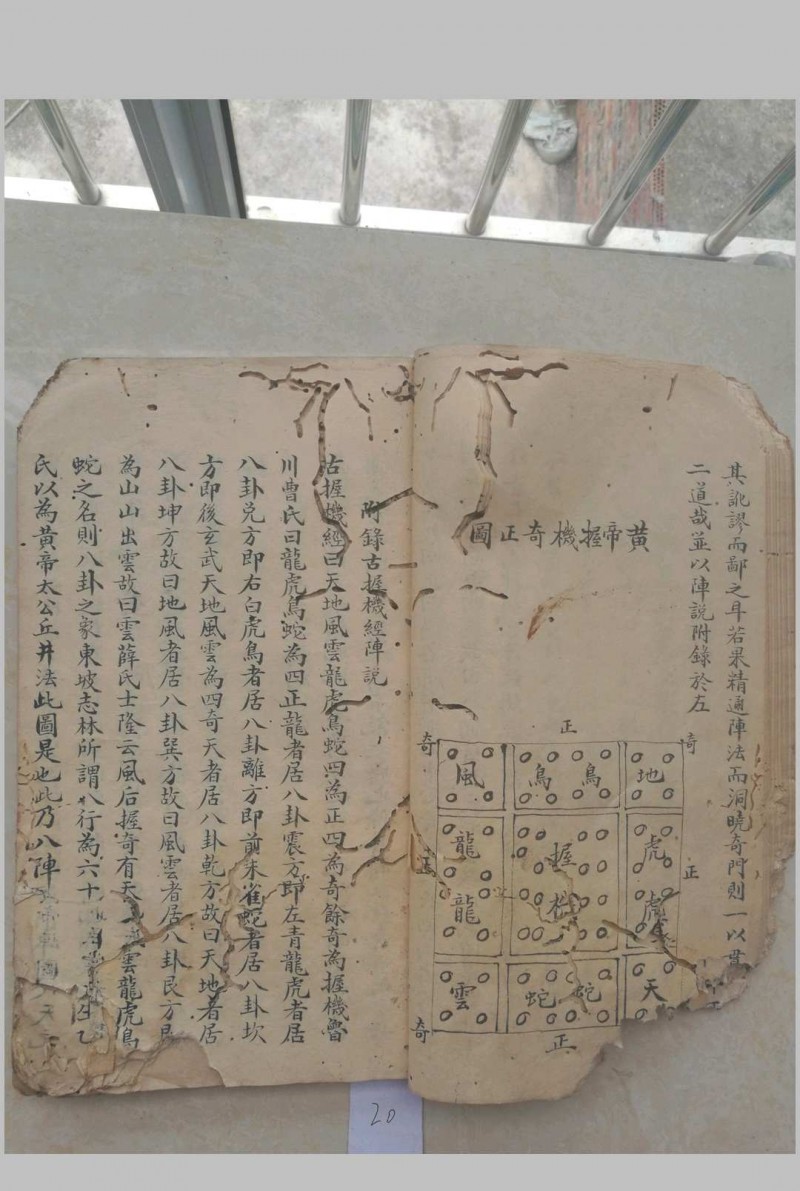 其訛謬而鄙之耳若果精通陣法而洞曉奇門則一以貫
二道哉並以陣說附錄於左
黃帝握機奇正圖
奇
正
奇
風
鳥
鳥
地
正
龍
龍
握
機
虎
虎
正
雲
蛇
蛇
天
奇
正
附錄古握機經陣說
古握機經曰天地風雲龍虎鳥蛇四為正四為奇餘奇為握機魯
川曹氏曰龍虎鳥蛇為四正龍者居八卦震方即左青龍虎者居
八卦兌方即右白虎鳥者居八卦離方即前朱雀蛇者居八卦坎
方即後玄武天地風雲為四奇天者居八卦乾方故曰天地者居
八卦坤方故曰地風者居八卦巽方故曰風雲者居八卦艮方艮
為山山出雲故曰雲薛氏士隆云風后握奇有天地風雲龍虎鳥
蛇之名則八卦之象東坡志林所謂八行為六十
氏以為黃帝太公丘井法此圖是也此乃八陣
20